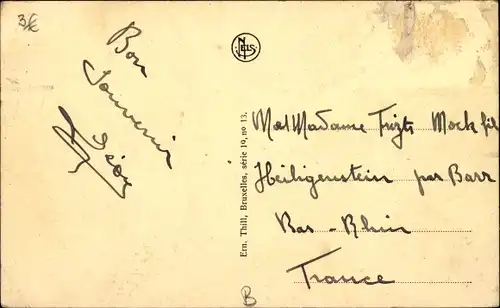 3€
Bon
Souvenir
Léon
NELS
Ern. Thill, Bruxelles, série 19, no 13.
M et Madame Fritz Mock fils
Heiligenstein par Barr
Bas-Rhin
France
B